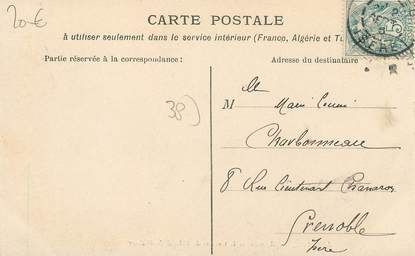 20€
CARTE POSTALE
à utiliser seulement dans le service intérieur (France, Algérie et Tu
Partie réservée à la correspondance:
Adresse du destinataire
38)
M lle
Charbonneau
8 Rue Lieutenant Chanaron
Grenoble
Isère
ISÈRE